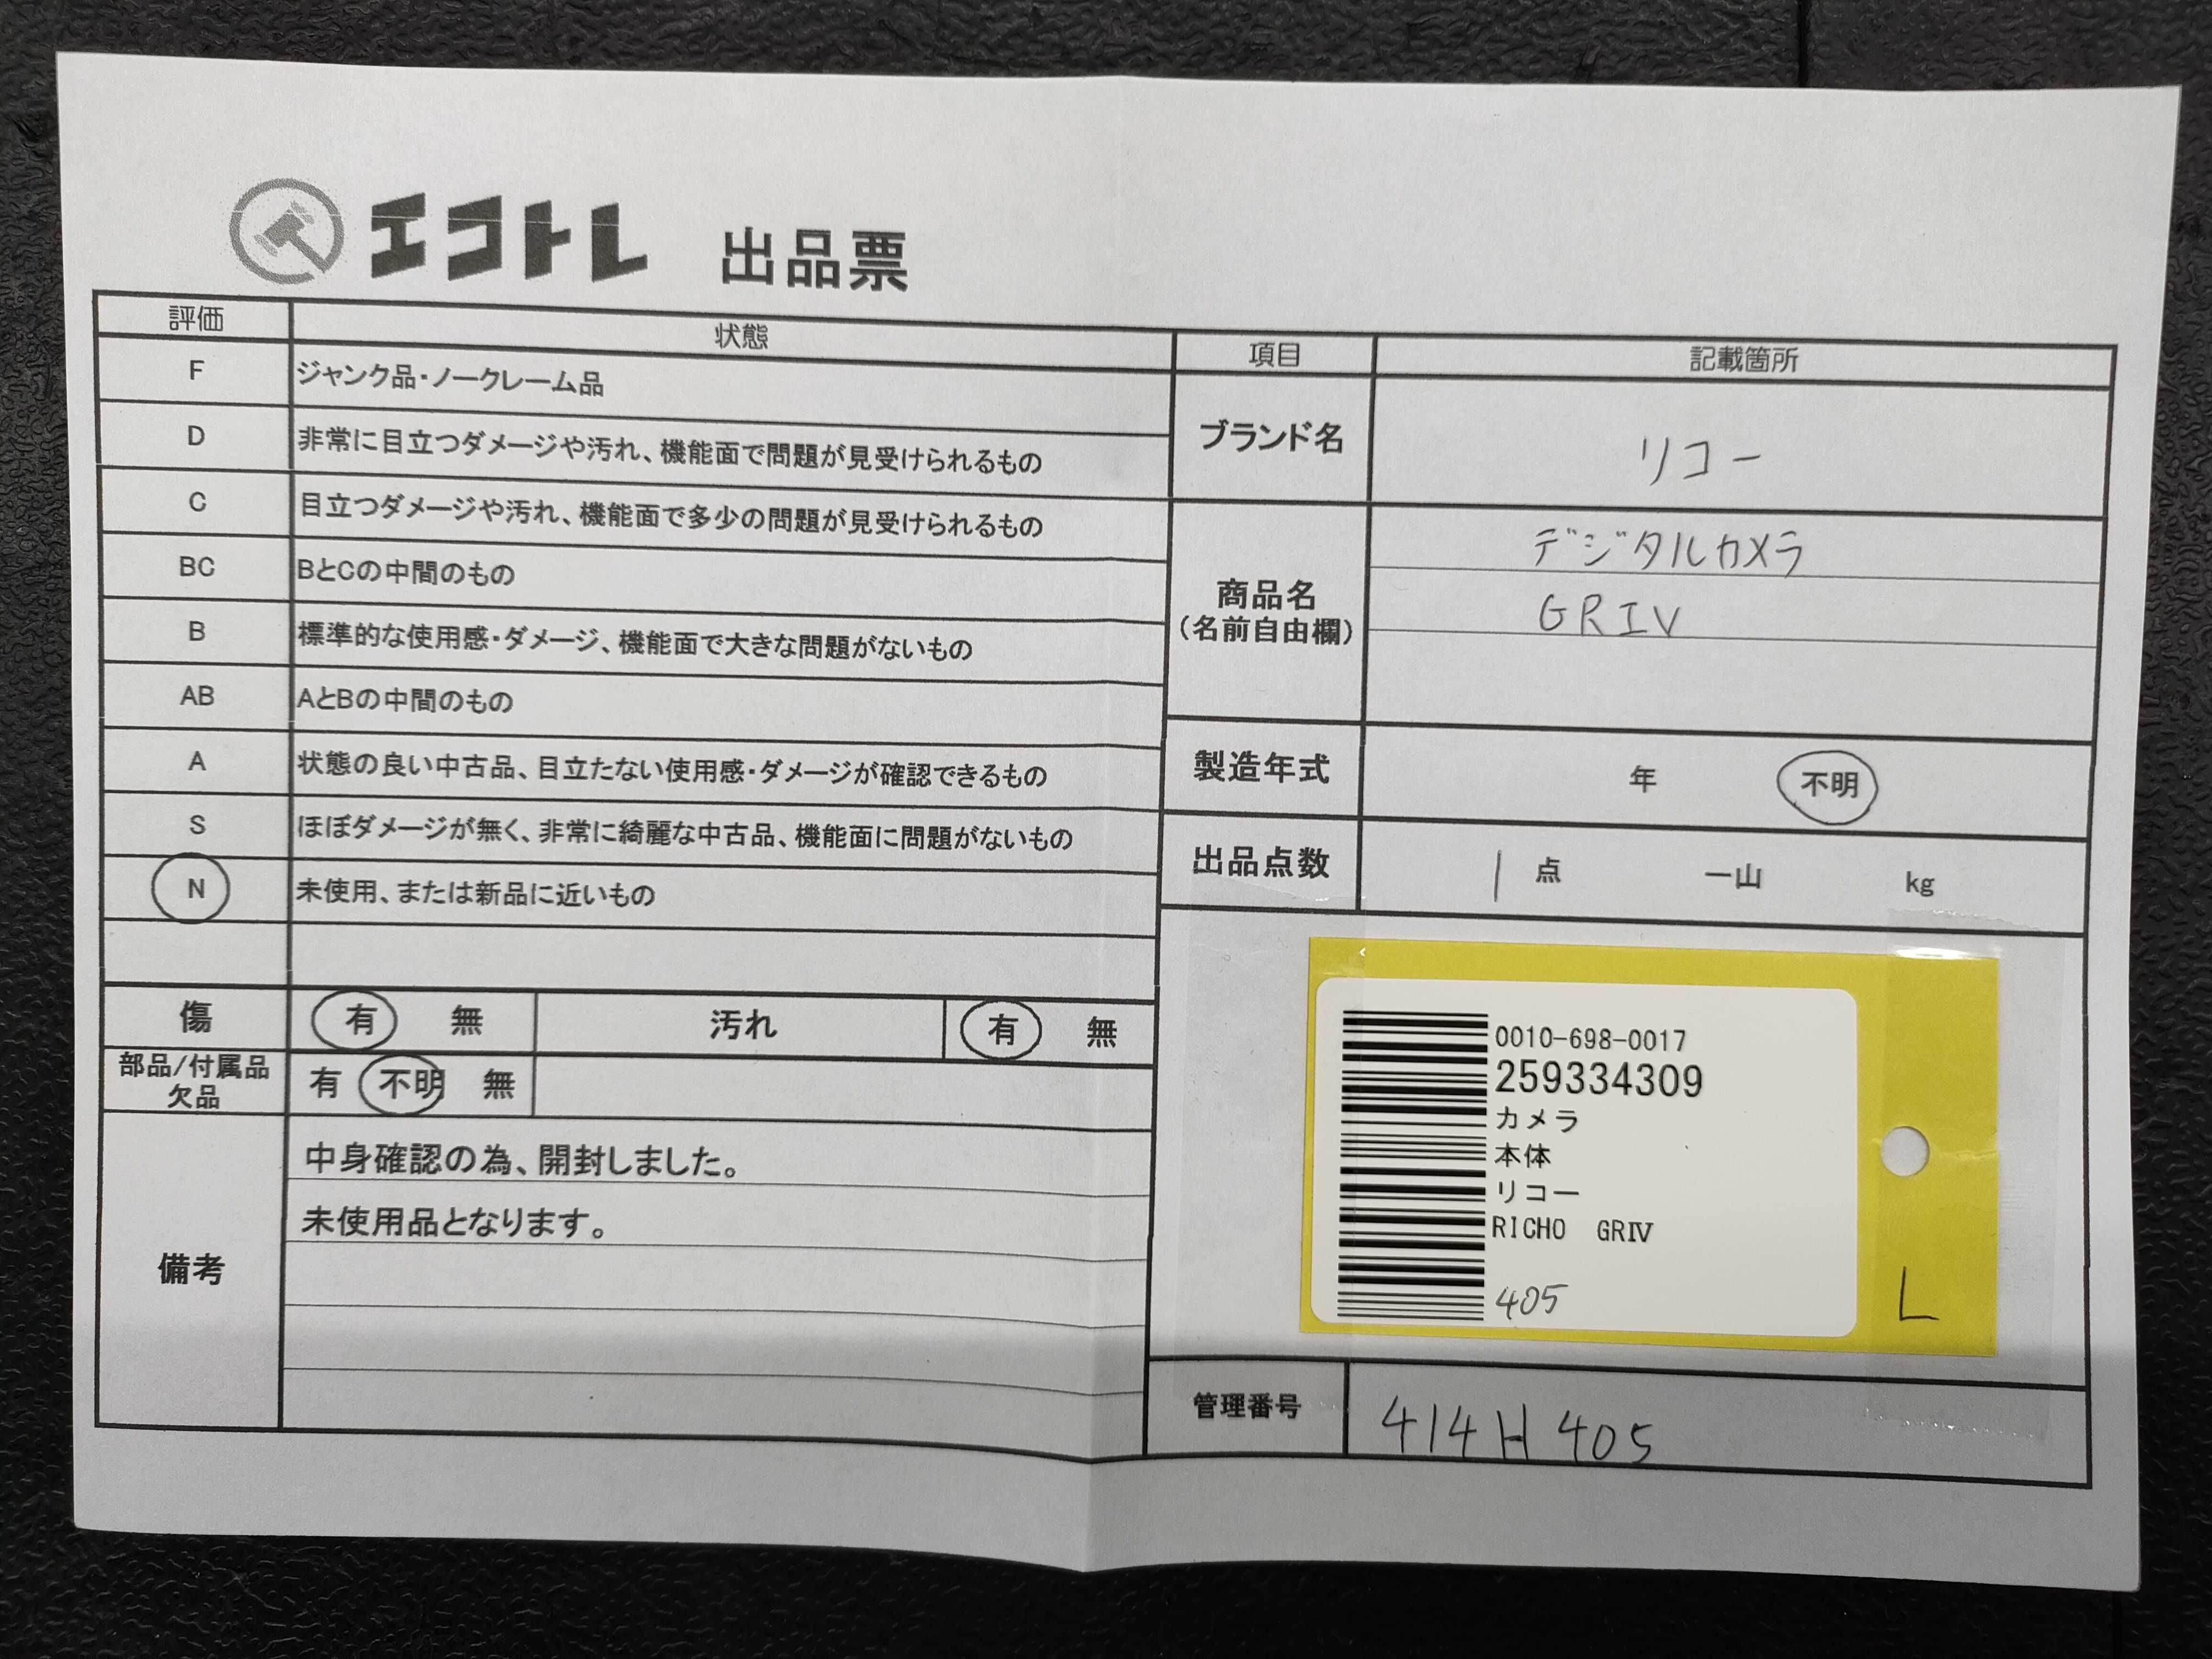 エコトレ 出品票
評価 状態
F ジャンク品・ノークレーム品
D 非常に目立つダメージや汚れ、機能面で問題が見受けられるもの
C 目立つダメージや汚れ、機能面で多少の問題が見受けられるもの
BC BとCの中間のもの
B 標準的な使用感・ダメージ、機能面で大きな問題がないもの
AB AとBの中間のもの
A 状態の良い中古品、目立たない使用感・ダメージが確認できるもの
S ほぼダメージが無く、非常に綺麗な中古品、機能面に問題がないもの
N 未使用、または新品に近いもの
傷 有 無 汚れ 有 無
部品/付属品
欠品 有 不明 無
備考
中身確認の為、開封しました。
未使用品となります。
項目 記載箇所
ブランド名 リコー
商品名
(名前自由欄)
デジタルカメラ
GRIV
製造年式 年 不明
出品点数 1 点 一山 kg
0010-698-0017
259334309
カメラ
本体
リコー
RICHO GRⅣ
405
L
管理番号 414H405